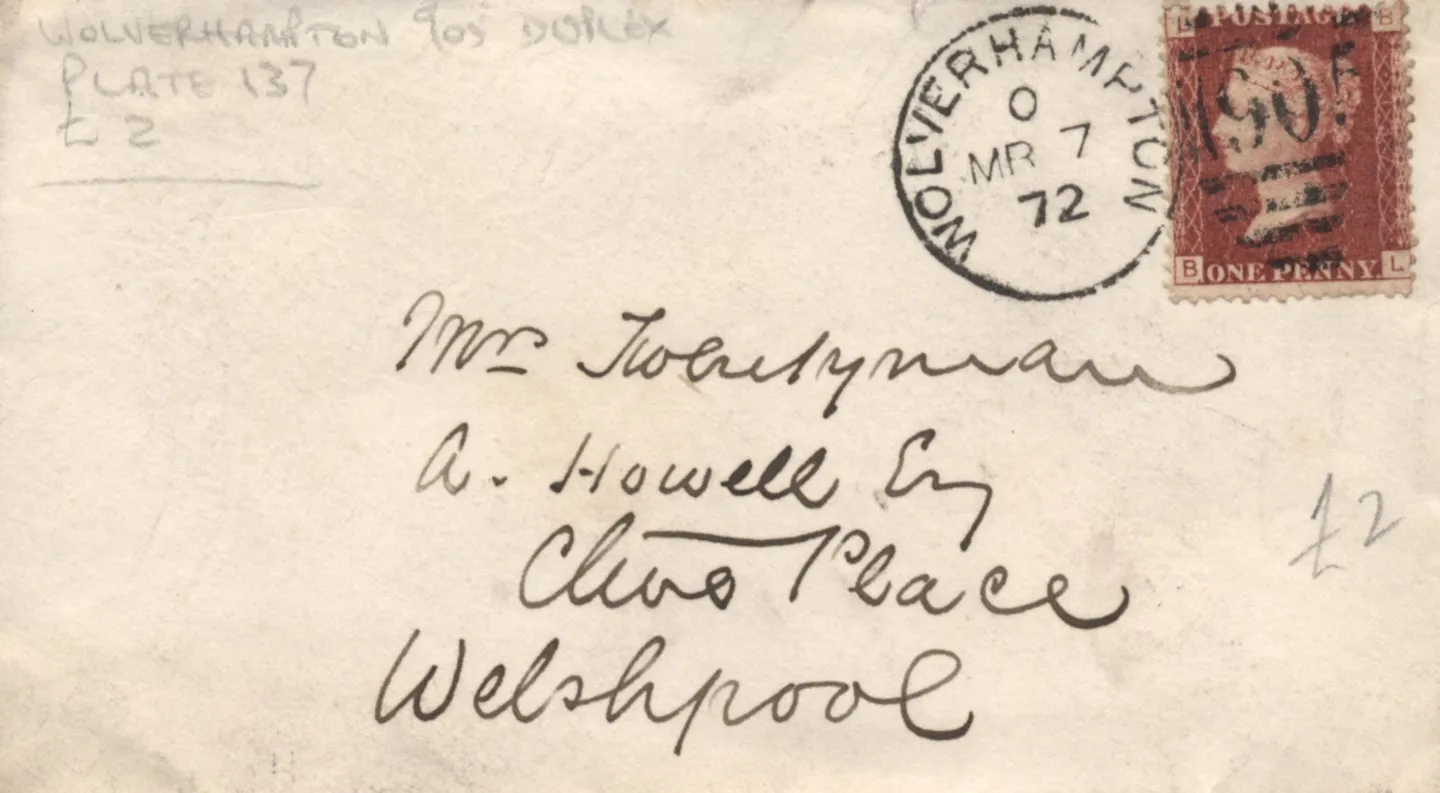 WOLVERHAMPTON 905 DUPLEX
PLATE 137
£2
WOLVERHAMPTON
O
MR 7
72
L POSTAGE B
905
B ONE PENNY L
Mrs Twentyman
A. Howell Esq
Clive Place
Welshpool
£2